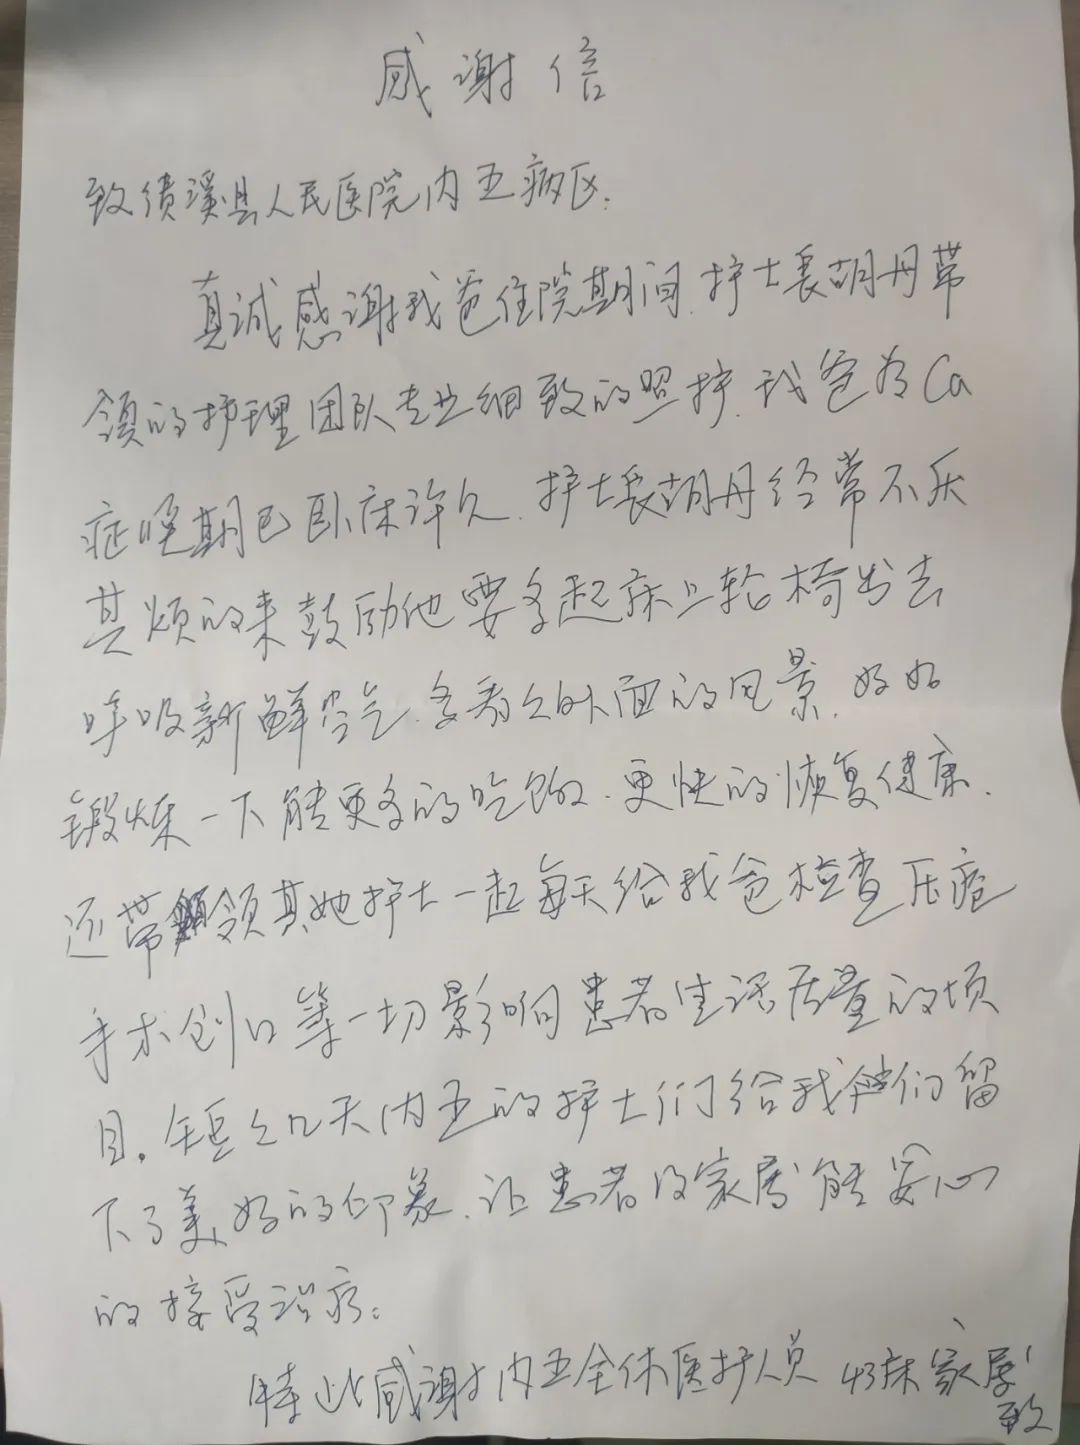 感谢信
致绩溪县人民医院内五病区:
真诚感谢我爸住院期间.护士长胡丹带
领的护理团队专业细致的照护.我爸为Ca
症晚期已卧床许久.护士长胡丹经常不厌
其烦的来鼓励他要多起床上轮椅出去
呼吸新鲜空气.多看久外面的风景.好好
锻炼一下能更多的吃饭.更快的恢复健康.
还带领其她护士一起每天给我爸检查压疮
手术创口等一切影响患者生活质量的项
目。短短几天内五的护士们给我们留
下了美好的印象.让患者及家属能安心
的接受治疗。
特此感谢内五全体医护人员 43床家属
致